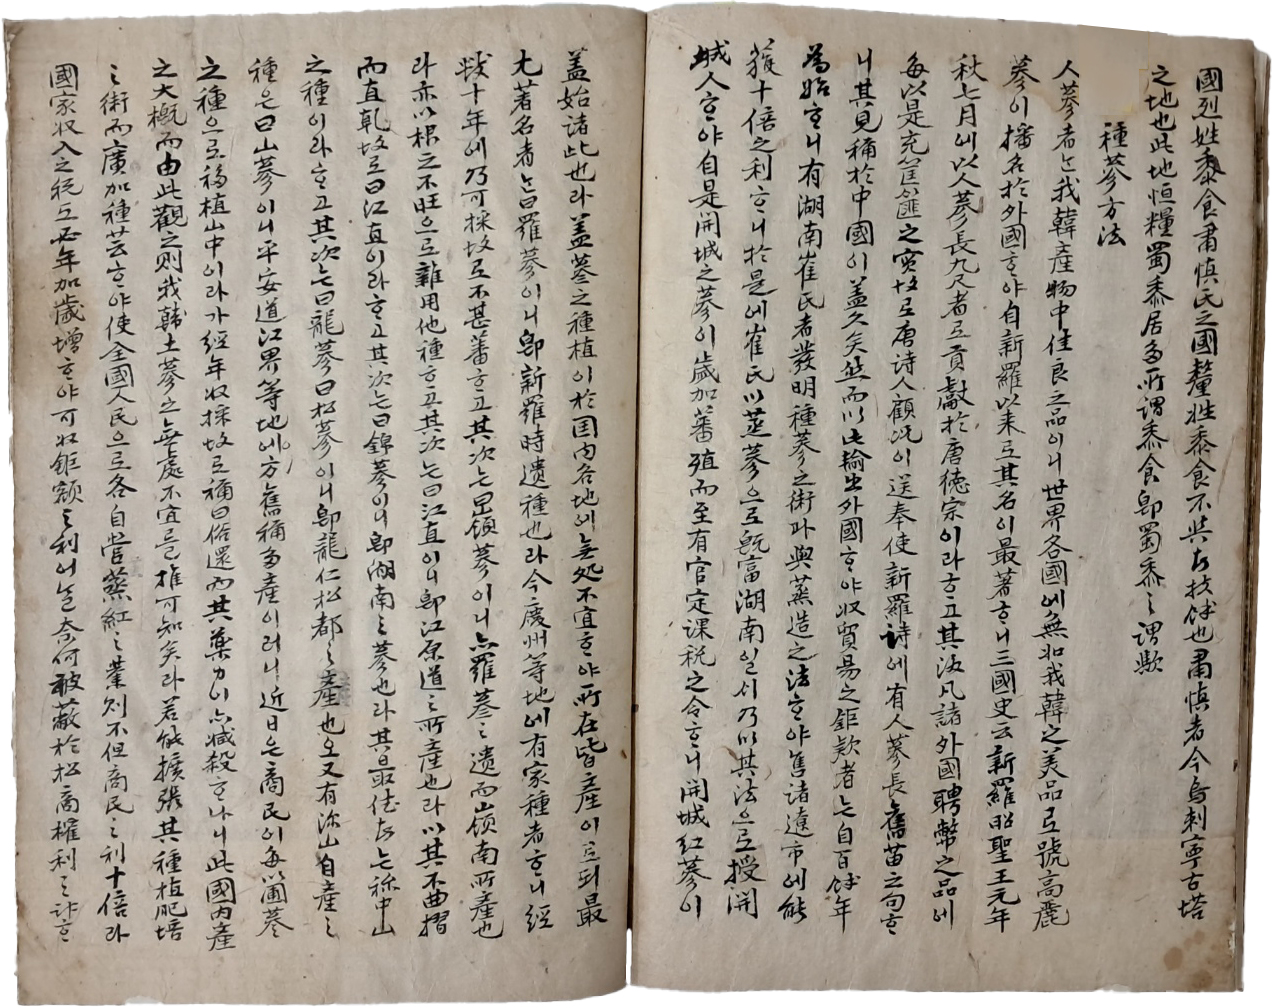 國烈姓黍食肅愼氏之國釐姓黍食不與古投餘也肅愼者今烏剌寧古塔
之地也此地恒糧蜀黍居多所謂黍食卽蜀黍之謂歟
種蔘方法
人蔘者는我韓產物中佳良之品이니世界各國에無如我韓之美品로號高麗
蔘이播名於外國ᄒᆞ야自新羅以來로其名이最著ᄒᆞ니三國史云新羅昭聖王元年
秋七月에以人蔘長九尺者로貢獻於唐德宗이라ᄒᆞ고其後凡諸外國聘幣之品에
每以是充筐篚之實故로唐詩人顧況이送奉使新羅詩에有人蔘長舊苗之句ᄒᆞ
니其見稱於中國이盖久矣然而以此輸出外國ᄒᆞ야收貿易之鉅欵者는自百餘年
爲始ᄒᆞ니有湖南崔氏者發明種蔘之術과與蒸造之法ᄒᆞ야售諸遠市에能
獲十倍之利ᄒᆞ니於是에崔氏以蒸蔘으로旣富湖南일ᄉᆡ乃以其法으로授開
城人ᄒᆞ야自是開城之蔘이歲加蕃殖而至有官定課稅之令ᄒᆞ니開城紅蔘이
盖始諸此也라盖蔘之種植이於國內各地에無處不宜ᄒᆞ야所在皆產이로되最
尤著名者는曰羅蔘이니卽新羅時遺種也라今慶州等地에有家種者ᄒᆞ니經
數十年에乃可採故로不甚蕃ᄒᆞ고其次는嶺蔘이니亦羅蔘之遺而嶺南所產也
라亦以根之不旺으로雜用他種ᄒᆞ고其次는曰江直이니卽江原道之所產也라以其不曲摺
而直乾故로曰江直이라ᄒᆞ고其次는曰錦蔘이니卽湖南之蔘也라其最佳者는稱中山
之種이라ᄒᆞ고其次는曰龍蔘曰松蔘이니卽龍仁松都之產也오又有深山自產之
種은曰山蔘이니平安道江界等地에方舊稱多產이러니近日은商民이每以圃蔘
之種으로移植山中이라가經年收採故로稱曰俗還而其藥力이亦減殺ᄒᆞ나니此國內產
之大槪而由此觀之則我韓土蔘之無處不宜를推可知矣라若能擴張其種植肥培
之術而廣加種芸ᄒᆞ야使全國人民으로各自營蒸紅之業則不但商民之利十倍라
國家收入之稅도必年加歲增ᄒᆞ야可收鉅額之利어늘奈何被蔽於松商權利之計ᄒᆞ